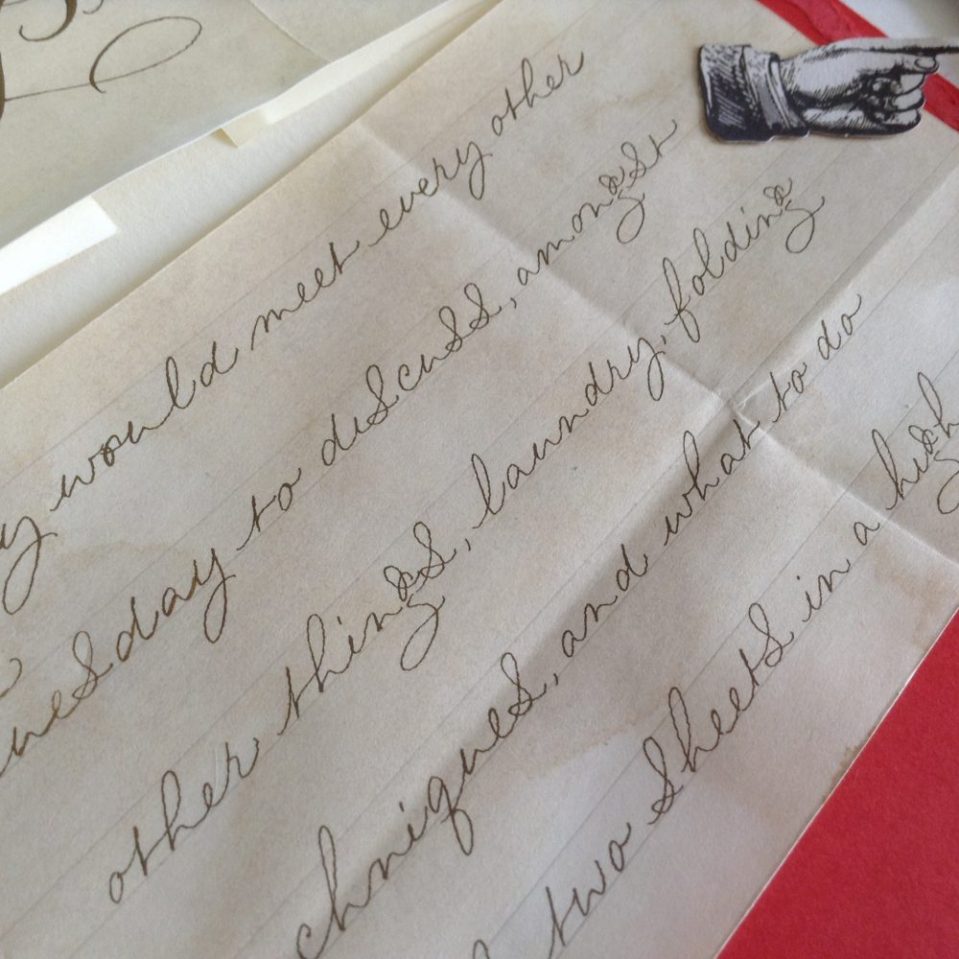 y would meet every other
uesday to discuss, amongst
other things, laundry, folding
chniques, and what to do
two sheets in a high